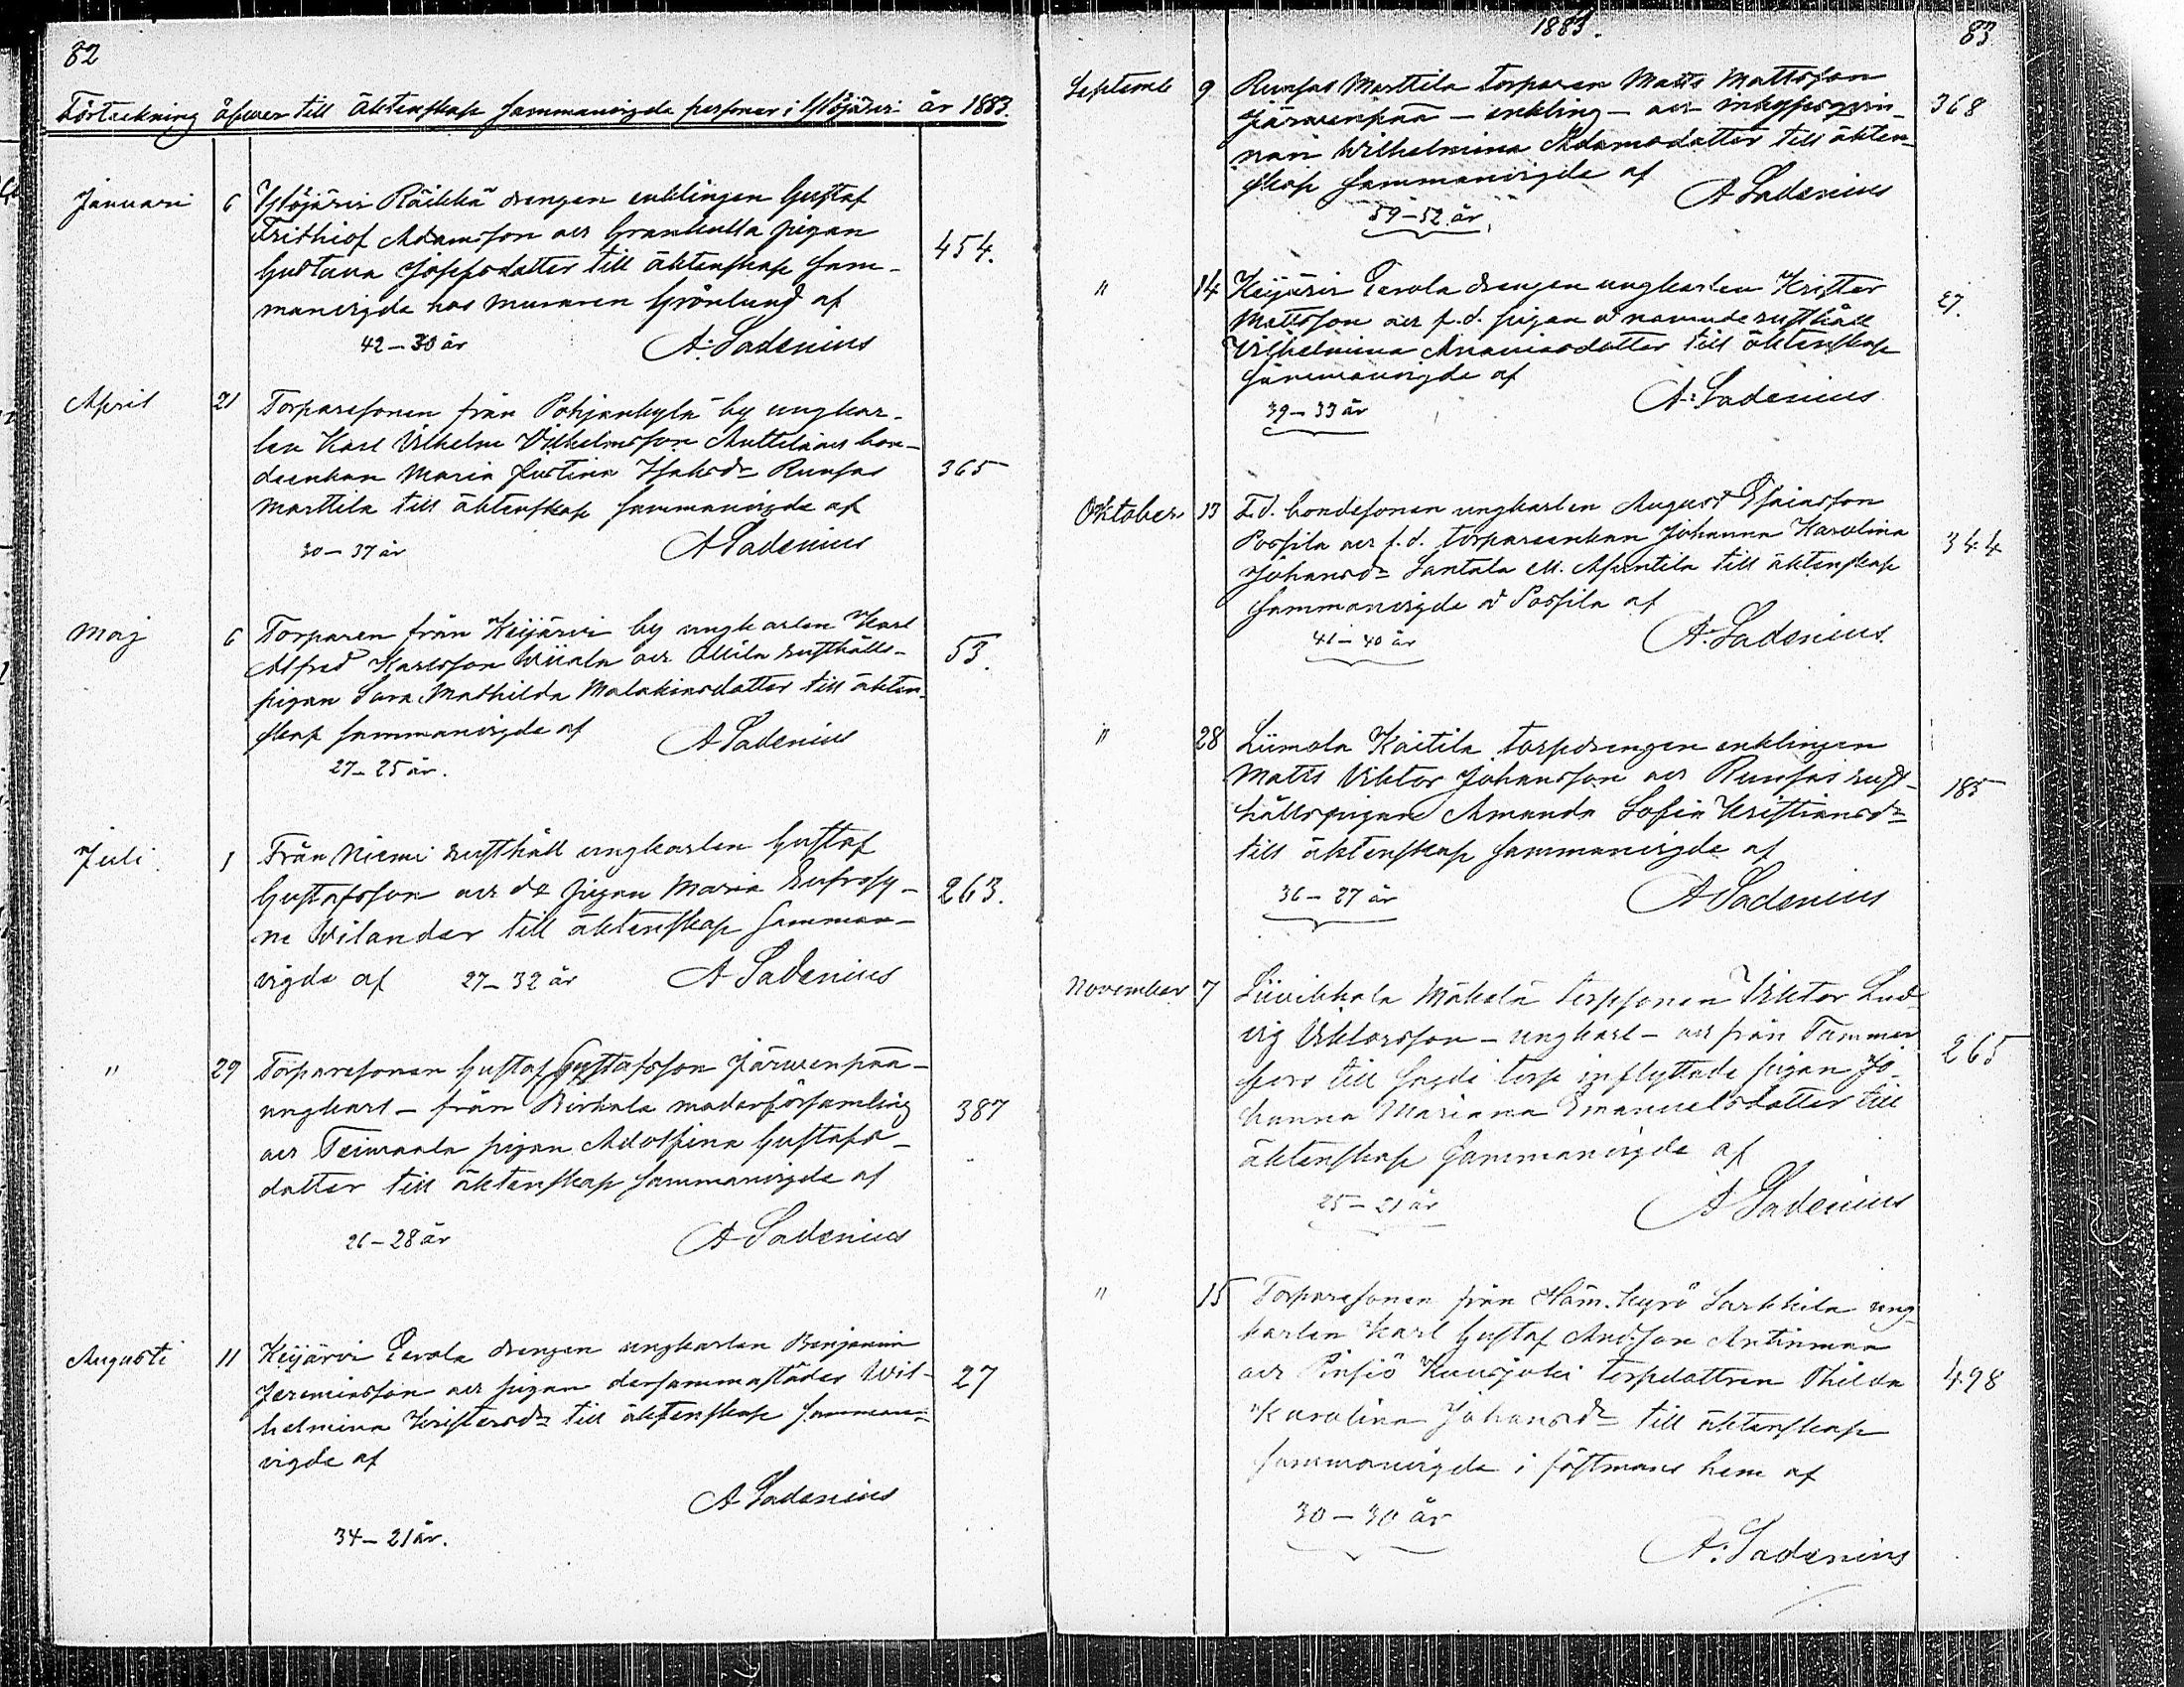 82
Förteckning öfwer till äktenskap sammanvigde personer i Ylöjärvi år 1883.
Januari 6 Ylöjärvi Räikkä drengen enklingen Gustaf
Frithiof Adamsson och Grankulla pigan
Gustava Josefsdotter till äktenskap sam- 454.
manvigde hos muraren Grönlund af
42-30 år A. Ladenius
April 21 Torparesonen från Pohjankylä by ungkar-
len Karl Vilhelm Vilhelmsson Anttila och bon-
deenkan Maria Justina Isaksdr Runsas 365
Marttila till äktenskap sammanvigde af
30-37 år A Ladenius
Maj 6 Torparen från Keijärvi by ungkarlen Karl
Alfred Karlsson och Ollila rusthålls- 53.
pigan Sara Mathilda Malakiasdotter till äkten-
skap sammanvigde af A Ladenius
27-25 år.
Juli 1 Från Niemi rusthåll ungkarlen Gustaf
Gustafsson och do pigan Maria Eufrosy- 263.
ne Wilander till äktenskap samman-
vigde af 27-32 år A Ladenius
" 29 Torparesonen Gustaf Gustafsson Järwenpää-
ungkarl - från Birkala moderförsamling 387
och Teiwaala pigan Adolfina Gustafs-
dotter till äktenskap sammanvigde af
26-28 år A Ladenius
Augusti 11 Keijärvi Eerola drengen ungkarlen Benjamin
Jeremiasson och pigan dersammastädes Wil- 27
helmina Kristersdr till äktenskap samman-
vigde af
A Ladenius
34-21 år.
1883. 83
Septemb 9 Runsas Marttila torparen Matts Mattsson
Järwenpää - enkling - och
nan Wilhelmina Adamsdotter till äkten- 368
skap sammanvigde af A Ladenius
59-52 år
" 14 Keijärvi Eerola drengen ungkarlen Krister
Mattsson och f.d. pigan å namnde rusthåll 27.
Wilhelmina Ananiasdotter till äktenskap
sammanvigde af A. Ladenius
39-33 år
Oktober 13 F.d. bondesonen ungkarlen August Esaiasson
Possila och f.d. torpareenkan Johanna Karolina 344
Johansdr Santala till äktenskap
sammanvigde å Possila af
41-40 år A. Ladenius.
" 28 Liimola Kaitila torpdrengen enklingen
Matts Viktor Johansson och Runsas rust- 185
hållspigan Amanda Sofia Kristiansdr
till äktenskap sammanvigde af
36-27 år A Ladenius
November 7 Siivikkala Mäkelä torpsonen Viktor Lud-
vig Viktorsson - ungkarl - och från Tammer 265
fors till sagde torp inflyttade pigan Jo-
hanna Mariana Emanuelsdotter till
äktenskap sammanvigde af
25-21 år A Ladenius
" 15 Torparesonen från Ham.kyrö Sarkkila ung-
karlen Karl Gustaf Andsson Antinmaa
och Pinsiö Kuusjoki torpdottren Thilda 498
Karolina Johansdr till äktenskap
sammanvigde i fästmans hem af
30-30 år
A. Ladenius